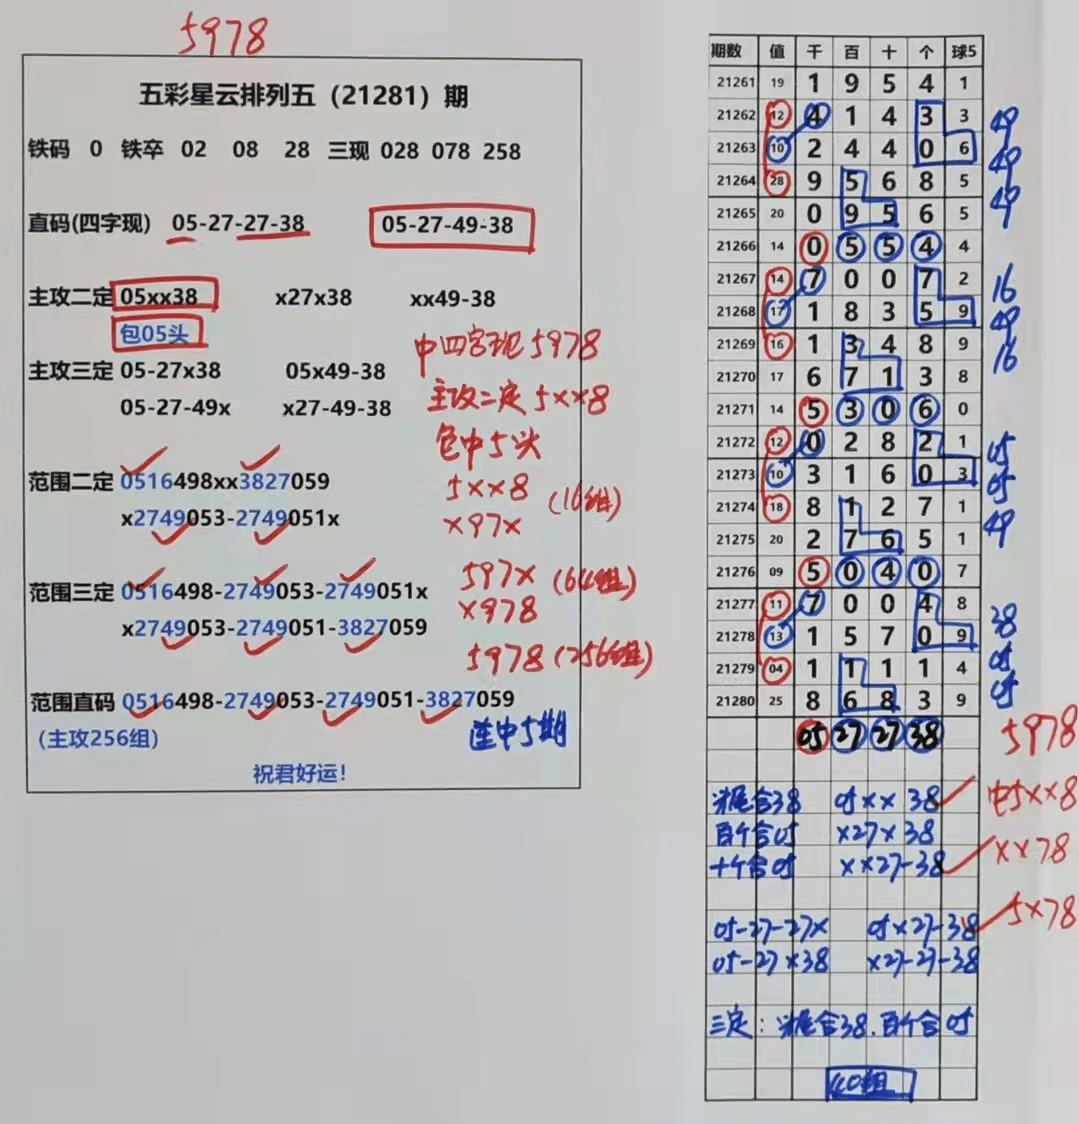 5978
五彩星云排列五（21281）期
铁码 0 铁卒 02 08 28 三现 028 078 258
直码(四字现) 05-27-27-38 05-27-49-38
主攻二定 05xx38 x27x38 xx49-38
包05头
主攻三定 05-27x38 05x49-38
05-27-49x x27-49-38
范围二定 0516498xx3827059
x2749053-2749051x
范围三定 0516498-2749053-2749051x
x2749053-2749051-3827059
范围直码 0516498-2749053-2749051-3827059
(主攻256组)
祝君好运!
中四字现5978
主攻二定5xx8
包中5头
5xx8 (16组)
x97x
597x (64组)
x978
5978 (256组)
连中5期
期数 值 千 百 十 个 球5
21261 19 1 9 5 4 1
21262 12 4 1 4 3 3 49
21263 10 2 4 4 0 6 49
21264 28 9 5 6 8 5 49
21265 20 0 9 5 6 5
21266 14 0 5 5 4 4
21267 14 7 0 0 7 2 16
21268 17 1 8 3 5 9 49
21269 16 1 3 4 8 9 16
21270 17 6 7 1 3 8
21271 14 5 3 0 6 0
21272 12 0 2 8 2 1 05
21273 10 3 1 6 0 3 05
21274 18 8 1 2 7 1 49
21275 20 2 7 6 5 1
21276 09 5 0 4 0 7
21277 11 7 0 0 4 8 38
21278 13 1 5 7 0 9 05
21279 04 1 1 1 1 4 05
21280 25 8 6 8 3 9
05 27 27 38 5978
头尾合38 05xx38 中5xx8
百个合05 x27x38
十个合05 xx27-38 xx78
05-27-27x 05x27-38 5x78
05-27x38 x27-27-38
三定：头尾合38.百个合05
40组